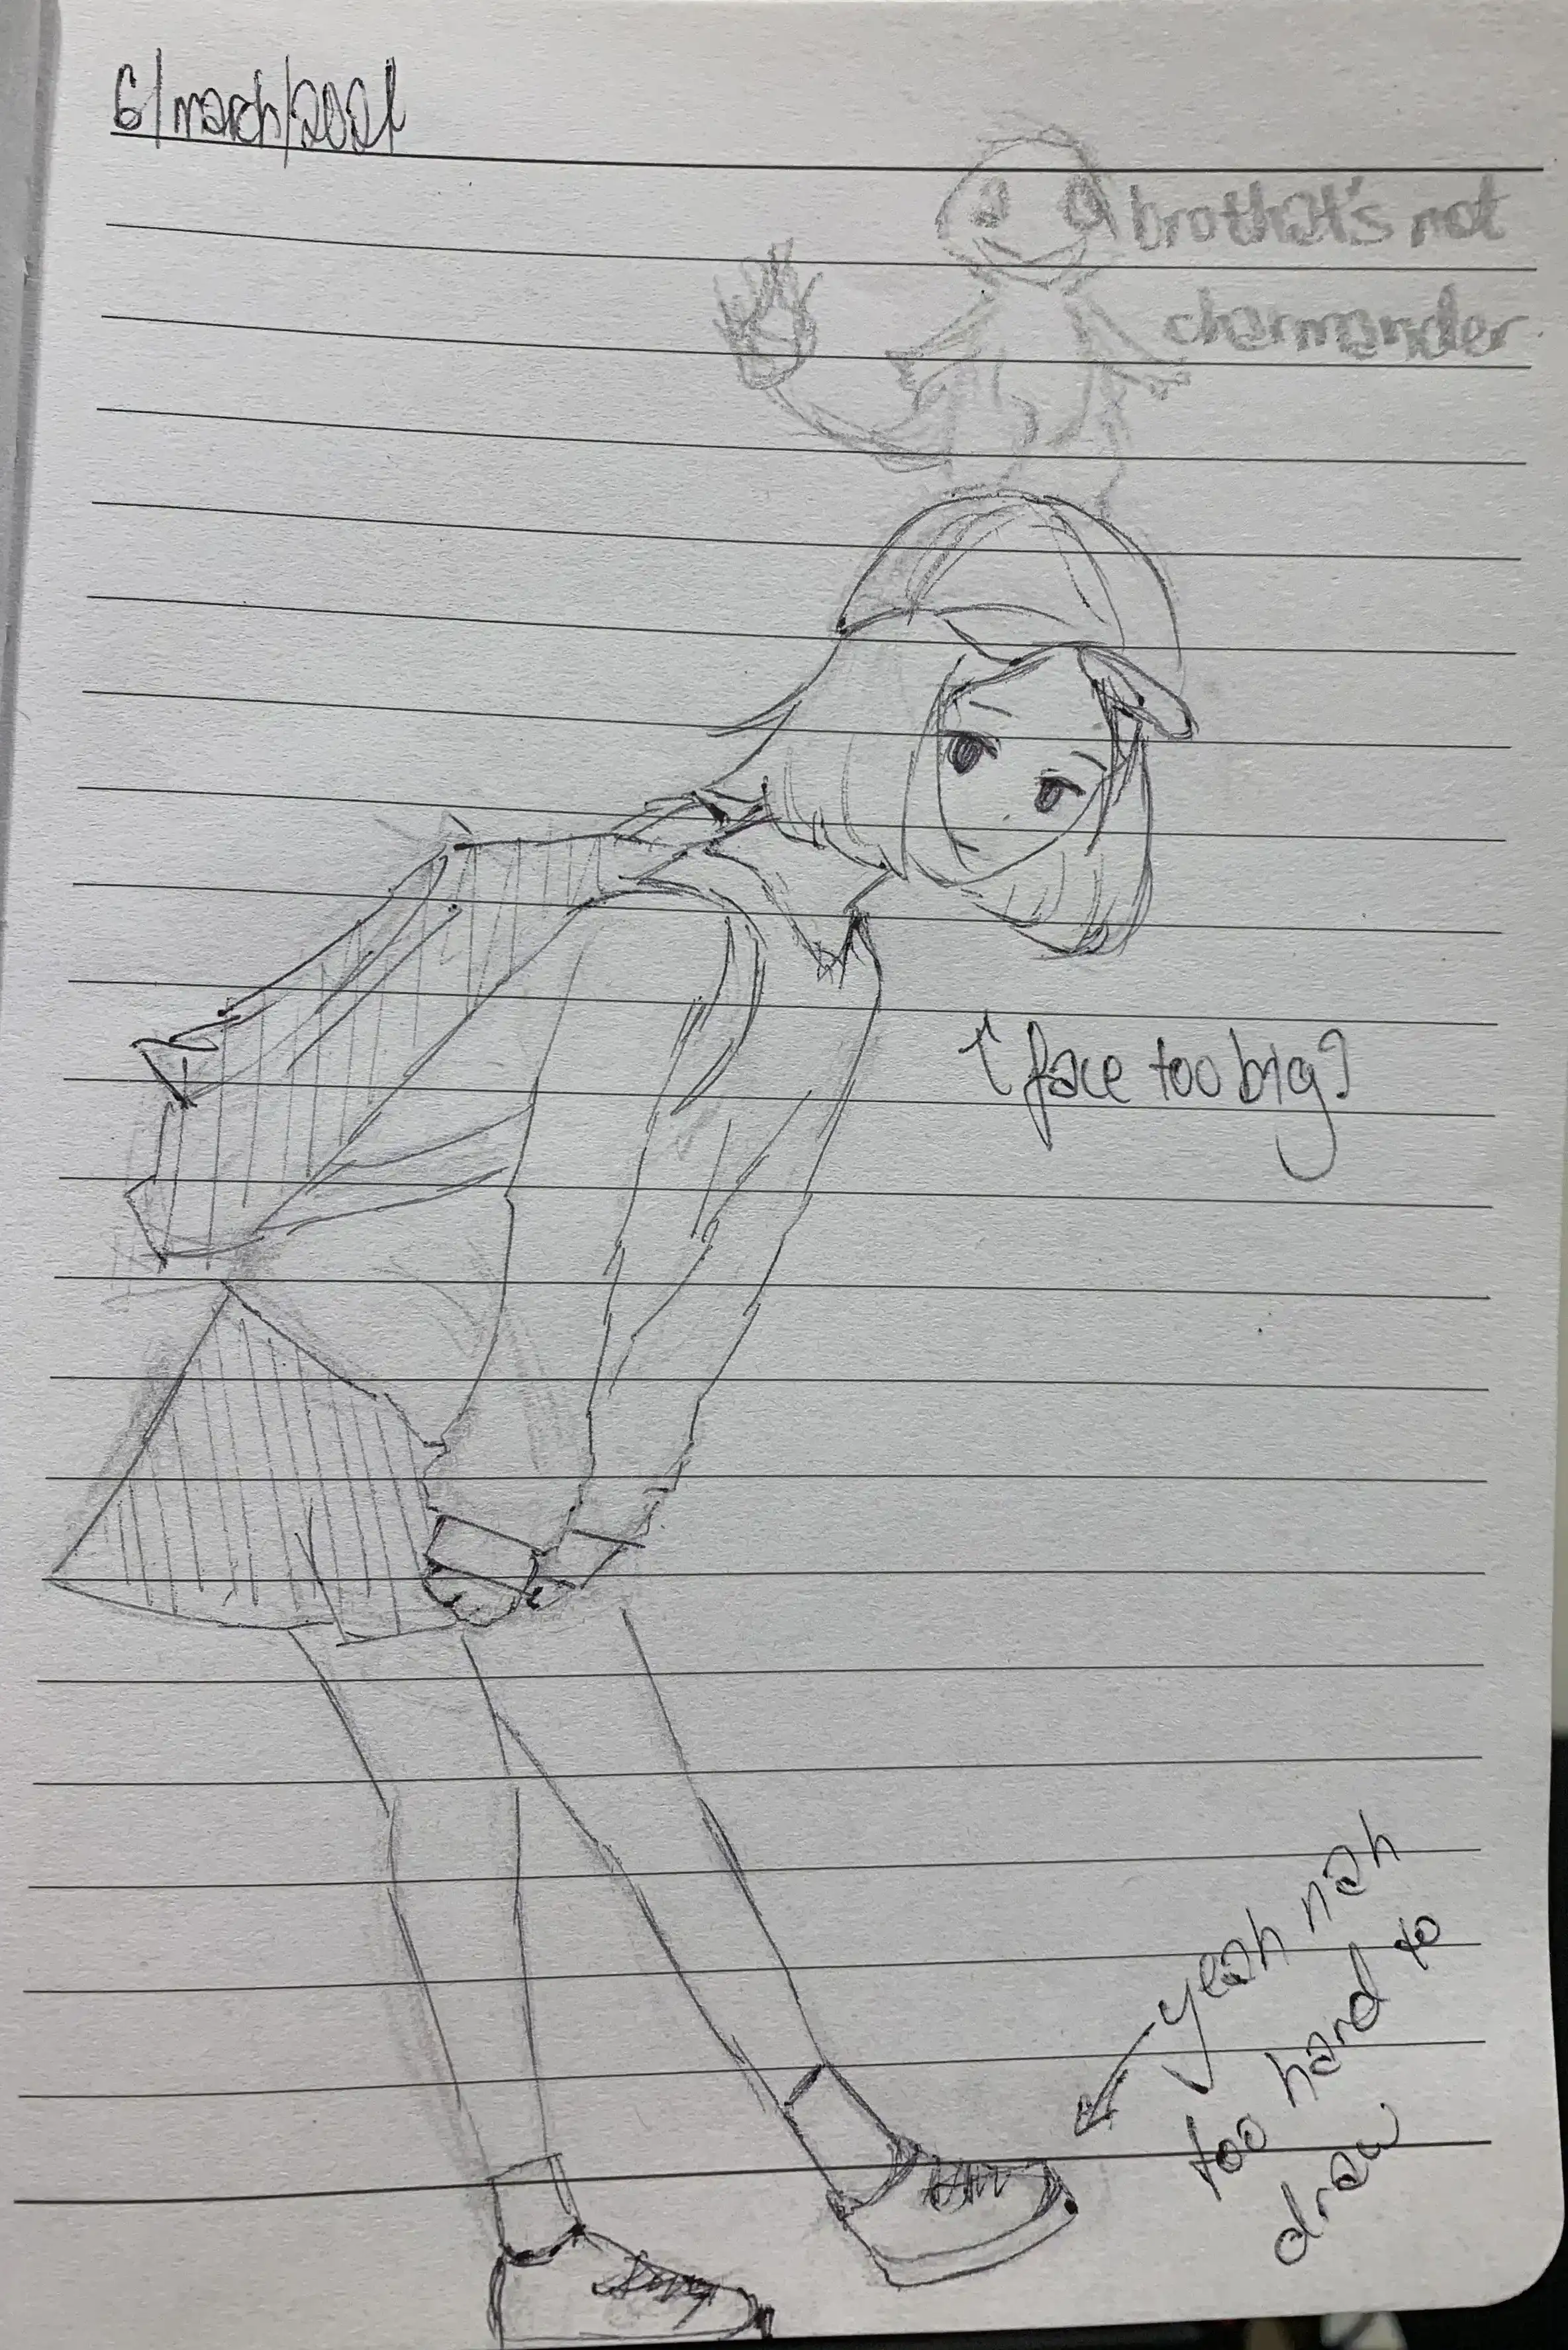 6/march/2021
bro that's not
charmander
↑ face too big?
yeah nah
too hard to
draw